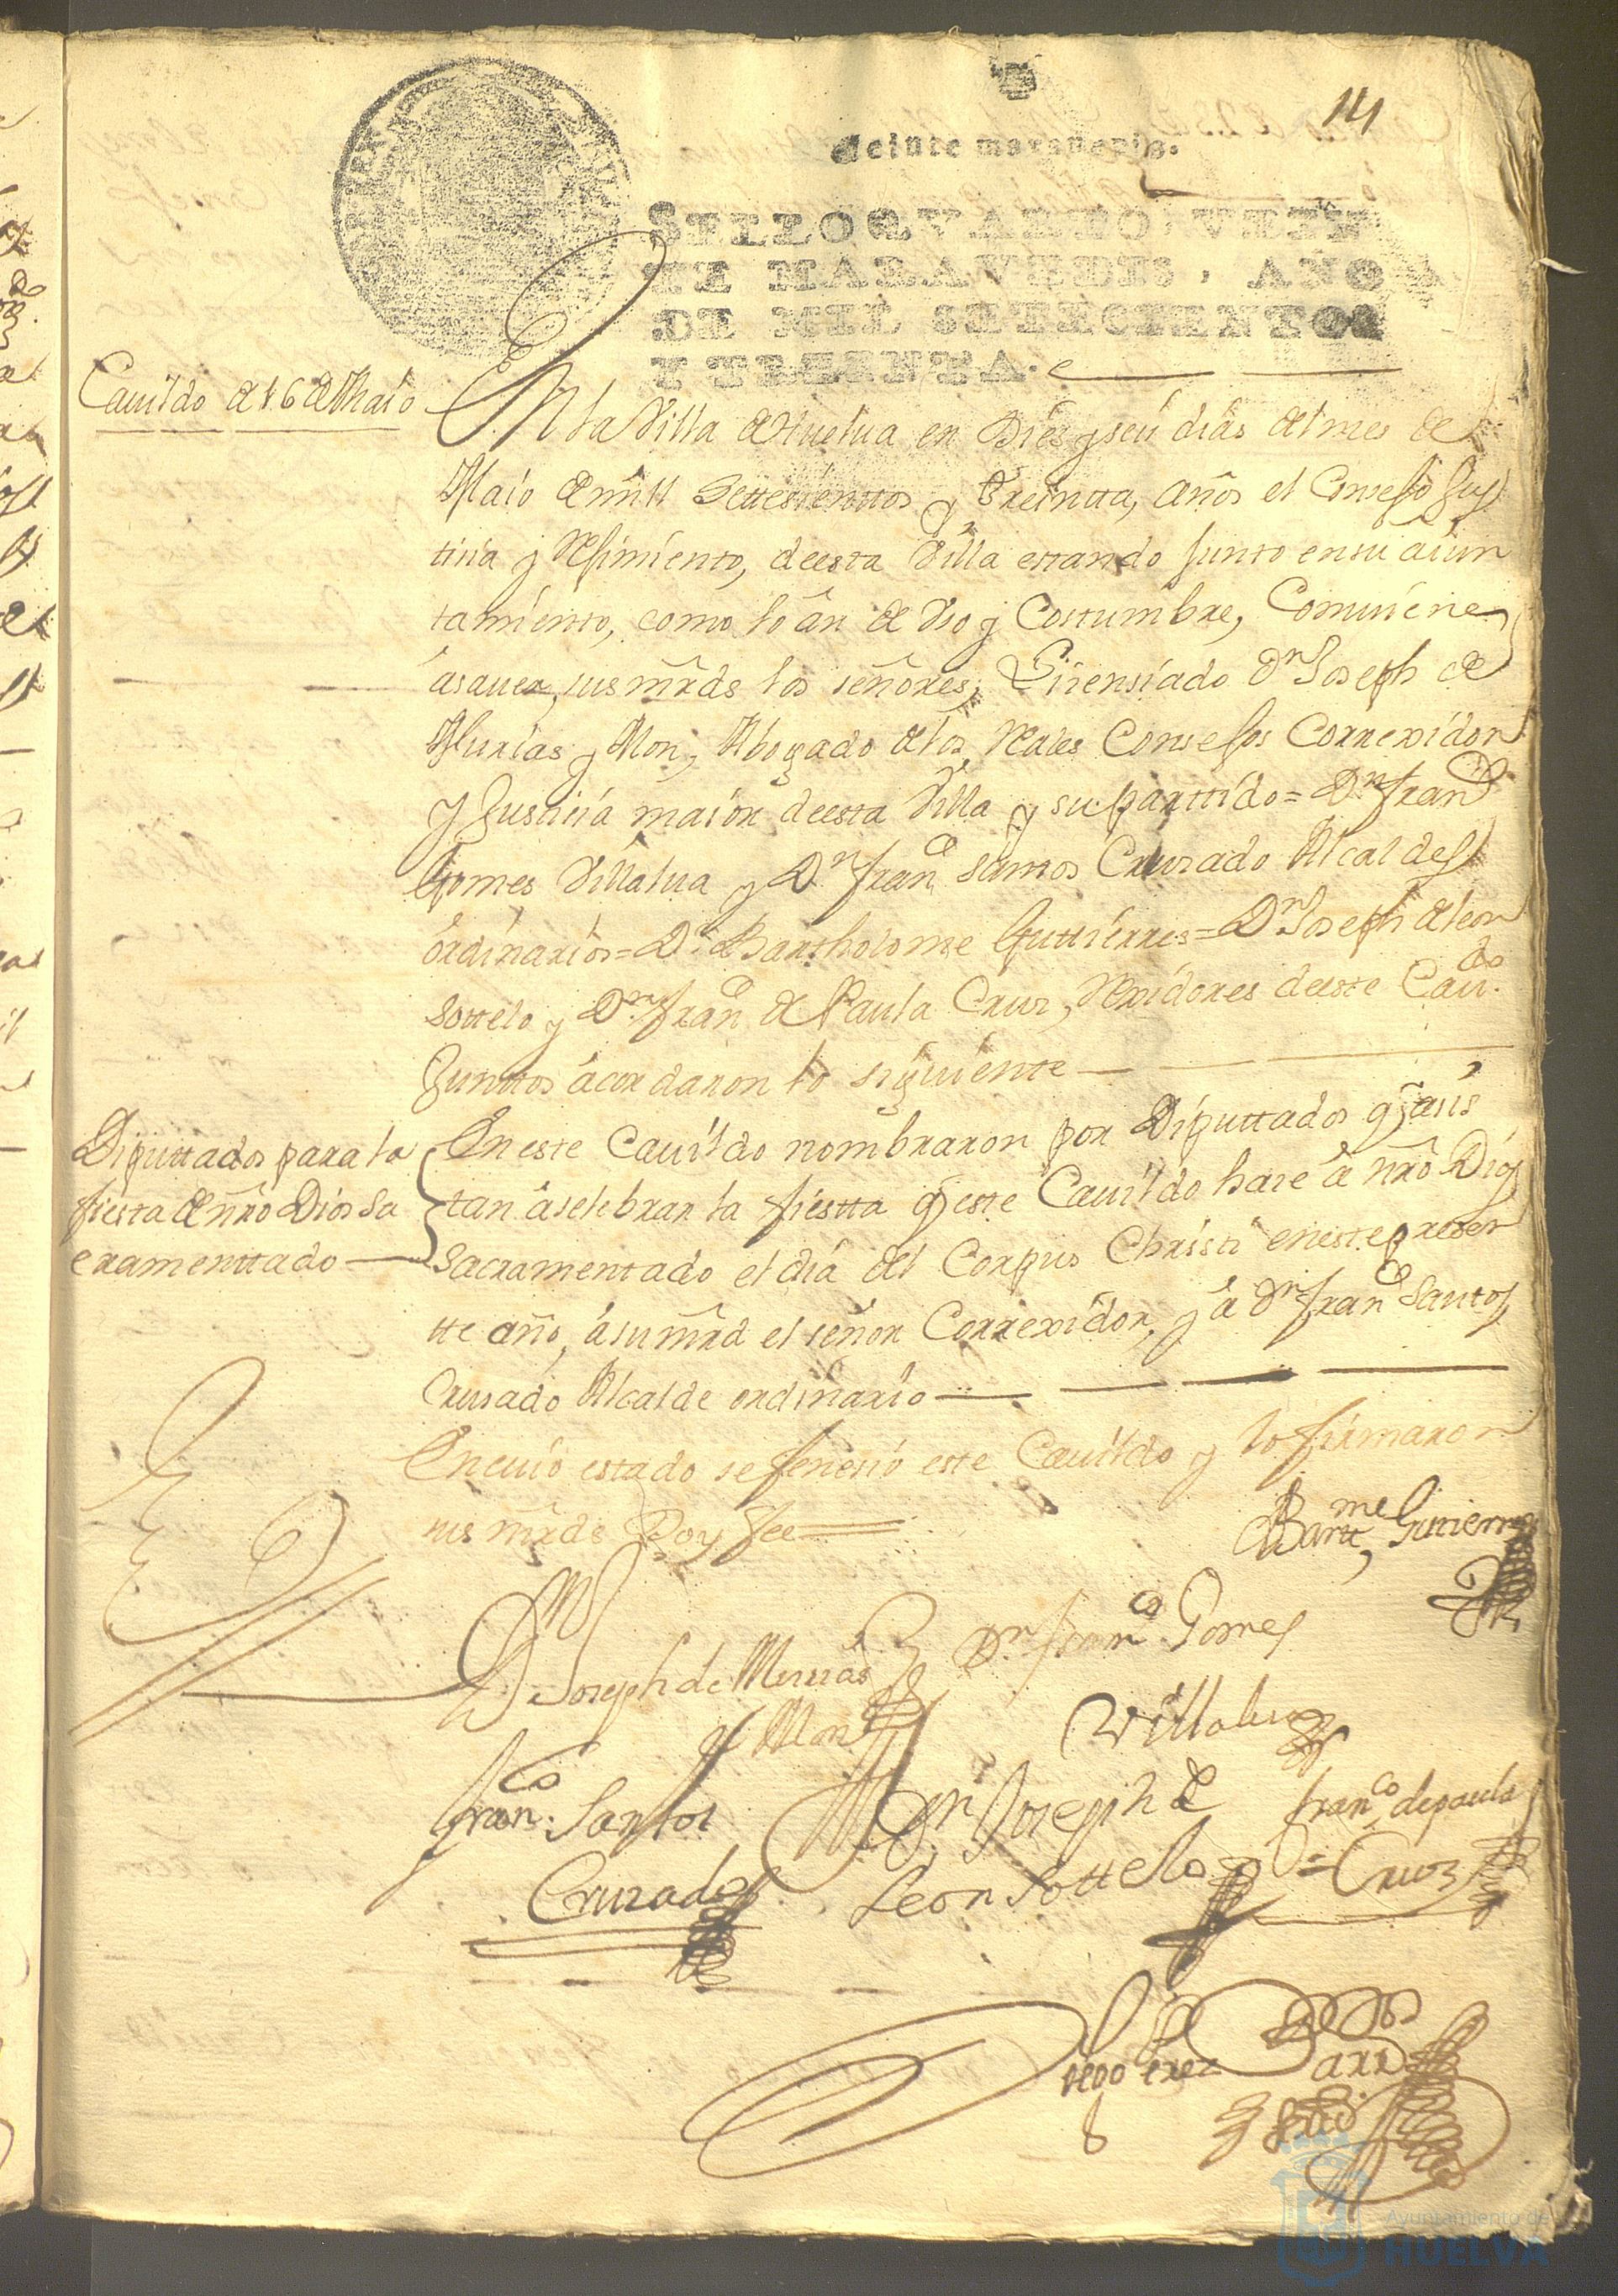 14
Veinte maravedis.
SELLO QVARTO, VEIN
TE MARAVEDIS, AÑO
DE MIL SETECIENTOS
Y TREINTA.
Cauildo de 16 de Maio
En la Villa de Huelua en Dies y seis dias del mes de
Maio de mill Settesienttos y Treintta, años el Consejo Jus
tisia y Rejimiento, de esta Villa estando Junto en su aiun
tamiento, como lo an de Vso y Costumbre, Comuiene
a sauer, sus mrds los señores, Lisensiado Dn Joseph de
Murias y Mon, Abogado de los Reales Consejos Correxidor
y Justisia maior de esta Villa y su parttido = Dn Franco
Gomes Villalua y Dn Franco Santos Cruzado Alcaldes
ordinarios = Dn Bartholome Guttierres = Dn Joseph de leon
Sottelo y Dn Franco de Paula Cruz, Rexidores de este Caudo.
Junttos acordaron lo siguiente
Diputtados para la
fiesta de nro Dios Sa
cramenttado
En este Cauildo nombraron por Diputtados q asis
tan a selebrar la fiestta q este Cauildo hase a nro Dios
Sacramentado el dia del Corpus Christi en este presen
tte año, a su mrd el señor Correxidor, y a Dn Franco Santos
Crusado Alcalde ordinario
En cuio estado se fenesio este Cauildo y lo firmaron
sus mrds Doy fee
Bartme Gutierres
Dn Joseph de Murias
y Mon
Dn Franco Gomes
Villalua
Franco Santos
Cruzado
Dn Joseph de
Leon Sottelo
Franco de paula
Cruz
Diego Perez
Ayuntamiento de
HUELVA